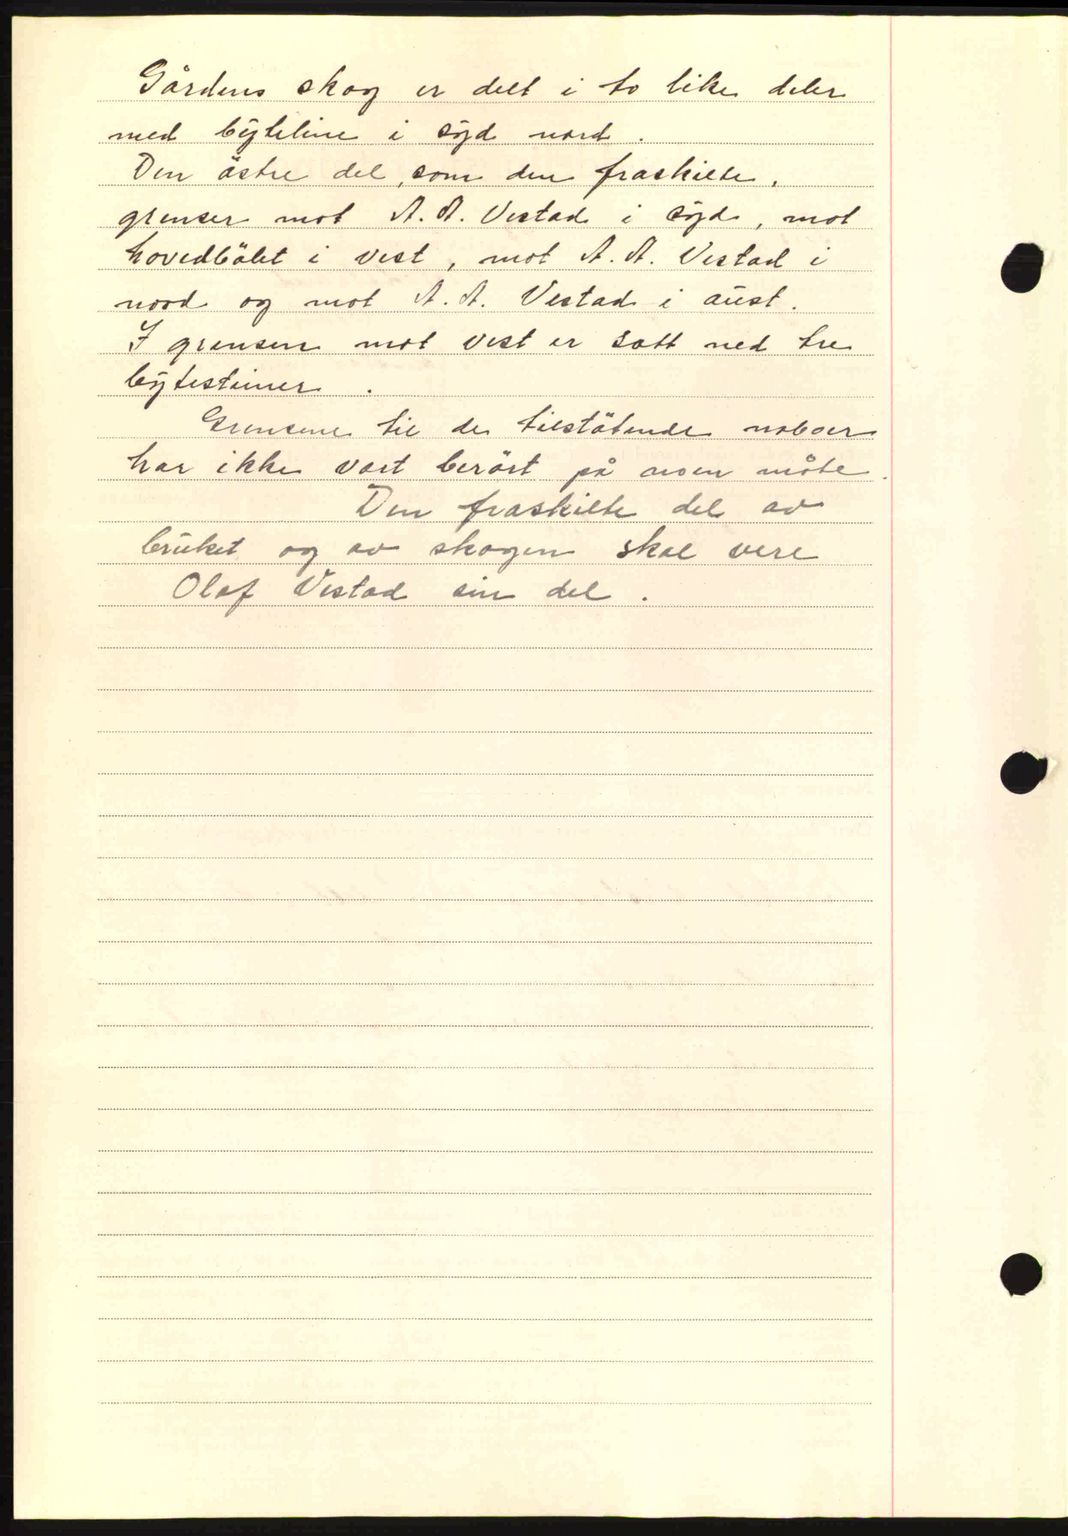 Gårdens skog er delt i to like deler
med byteline i syd nord.
Den östre del, som den fraskilte,
grenser mot A. A. Vestad i syd, mot
hovedbölet i vest, mot A. A. Vestad i
nord og mot A. A. Vestad i aust.
I grensen mot vest er satt ned tre
bytesteiner.
Grensene til de tilstötende naboer
har ikke vart berört på noen måte.
Den fraskilte del av
bruket og av skogen skal vere
Olaf Vestad sin del.